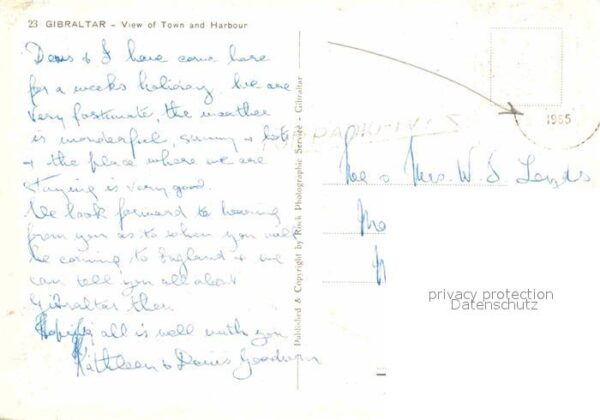 23 GIBRALTAR - View of Town and Harbour
Denis & I have come here
for a weeks holiday. We are
very fortunate, the weather
is wonderful, sunny & hot
& the place where we are
staying is very good.
We look forward to hearing
from you as to when you will
be coming to England & we
can tell you all about
Gibraltar then.
Hoping all is well with you
Kathleen & Denis Goodwin
Published & Copyright by Rock Photographic Service - Gibraltar
1965
Mrs. W. S.
privacy protection
Datenschutz